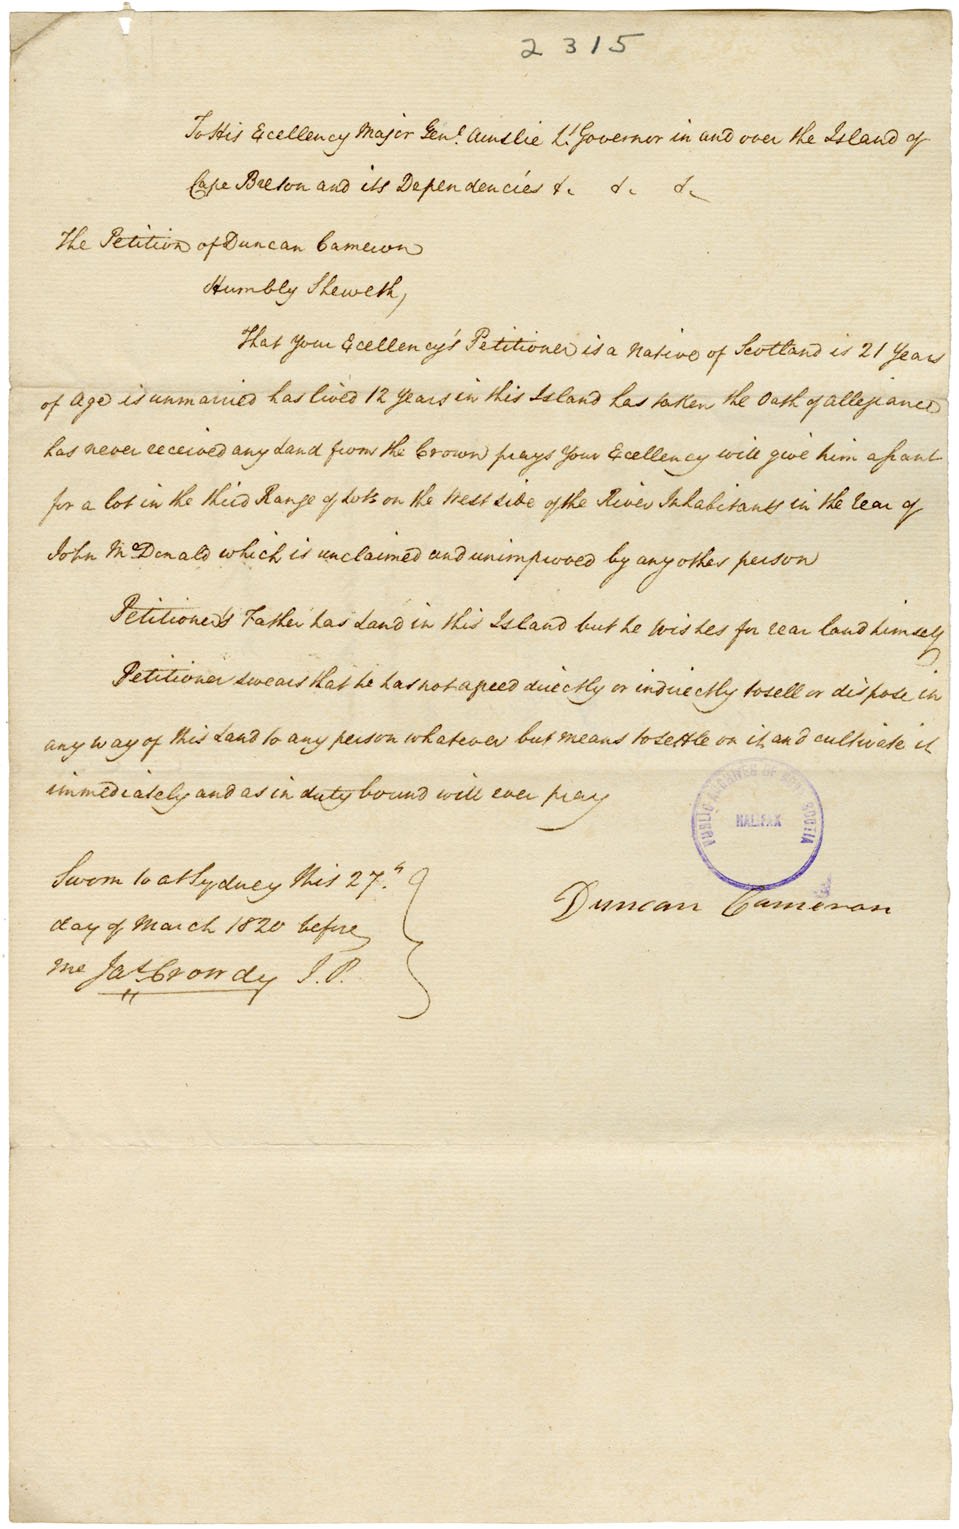 2315
To His Ecellency Major Genl. Ainslie Lt. Governor in and over the Island of
Cape Breton and its Dependencies &c &c &c
The Petition of Duncan Cameron
Humbly Sheweth,
That Your Ecellency's Petitioner is a Native of Scotland is 21 Years
of Age is unmarried has lived 12 Years in this Island has taken the Oath of allegiance
has never received any Land from the Crown prays Your Ecellency will give him a grant
for a lot in the third Range of Lots on the West side of the River Inhabitants in the rear of
John McDonald which is unclaimed and unimproved by any other person
Petitioner's Father has Land in this Island but he wishes for rear land himself
Petitioner swears that he has not agreed directly or indirectly to sell or dispose in
any way of this Land to any person whatever but means to settle on it and cultivate it
immediately and as in duty bound will ever pray
PUBLIC ARCHIVES OF NOVA SCOTIA
HALIFAX
Sworn to at Sydney this 27th
day of March 1820 before
me Jas Crowdy J.P.
Duncan Cameron